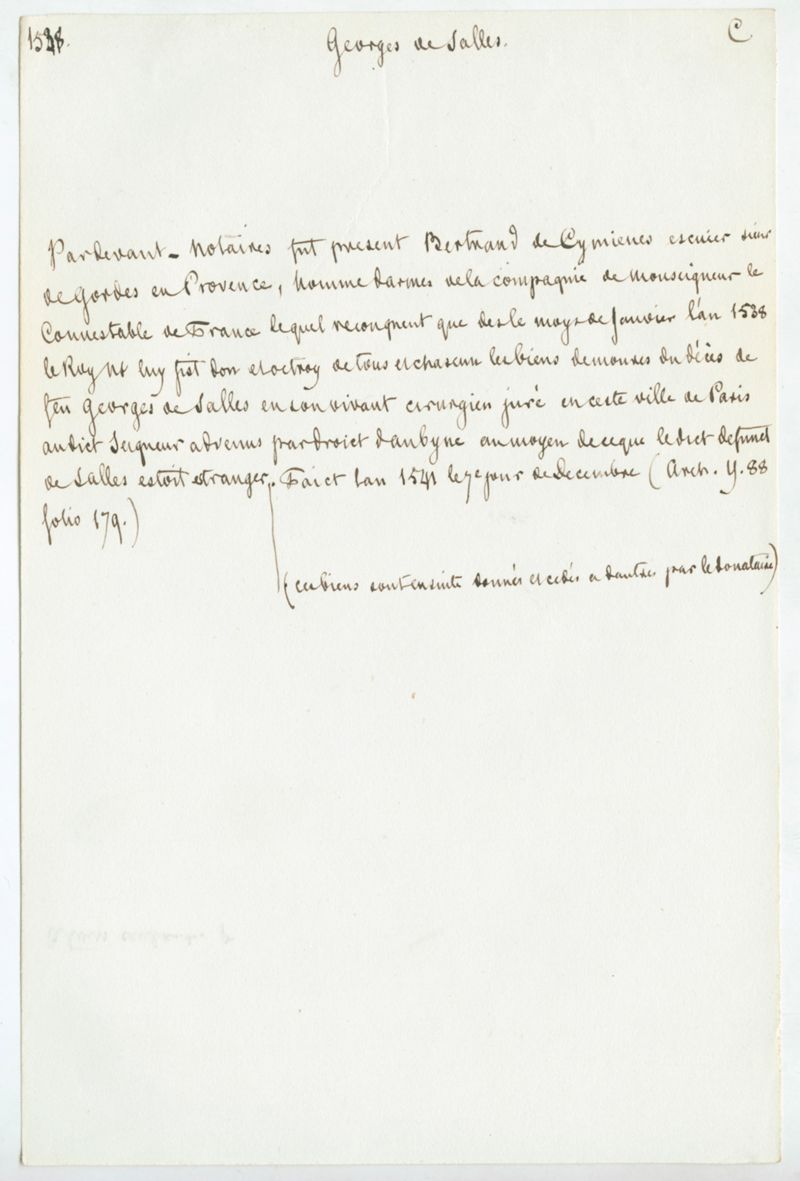 1538.
Georges de Salles.
C
Pardevant - Notaires fut present Bertrand de Cymienes escuier sieur
de Gordes en Provence, homme darmes de la compagnie de Monseigneur le
Connestable de France lequel recongneut que des le moys de Janvier l'an 1538
le Roy Nt luy fist don et octroy de tous et chascun les biens demoures du décès de
feu Georges de Salles en son vivant cirurgien juré en ceste ville de Paris
audict Seigneur advenus par droict daubyne au moyen de ce que le dict defunct
de Salles estoit estranger. Faict lan 1541 le 7e jour de Decembre (Arch. Y. 88
folio 179.)
(ces biens sont ensuite donnés et cédés a dautres par le donataire)